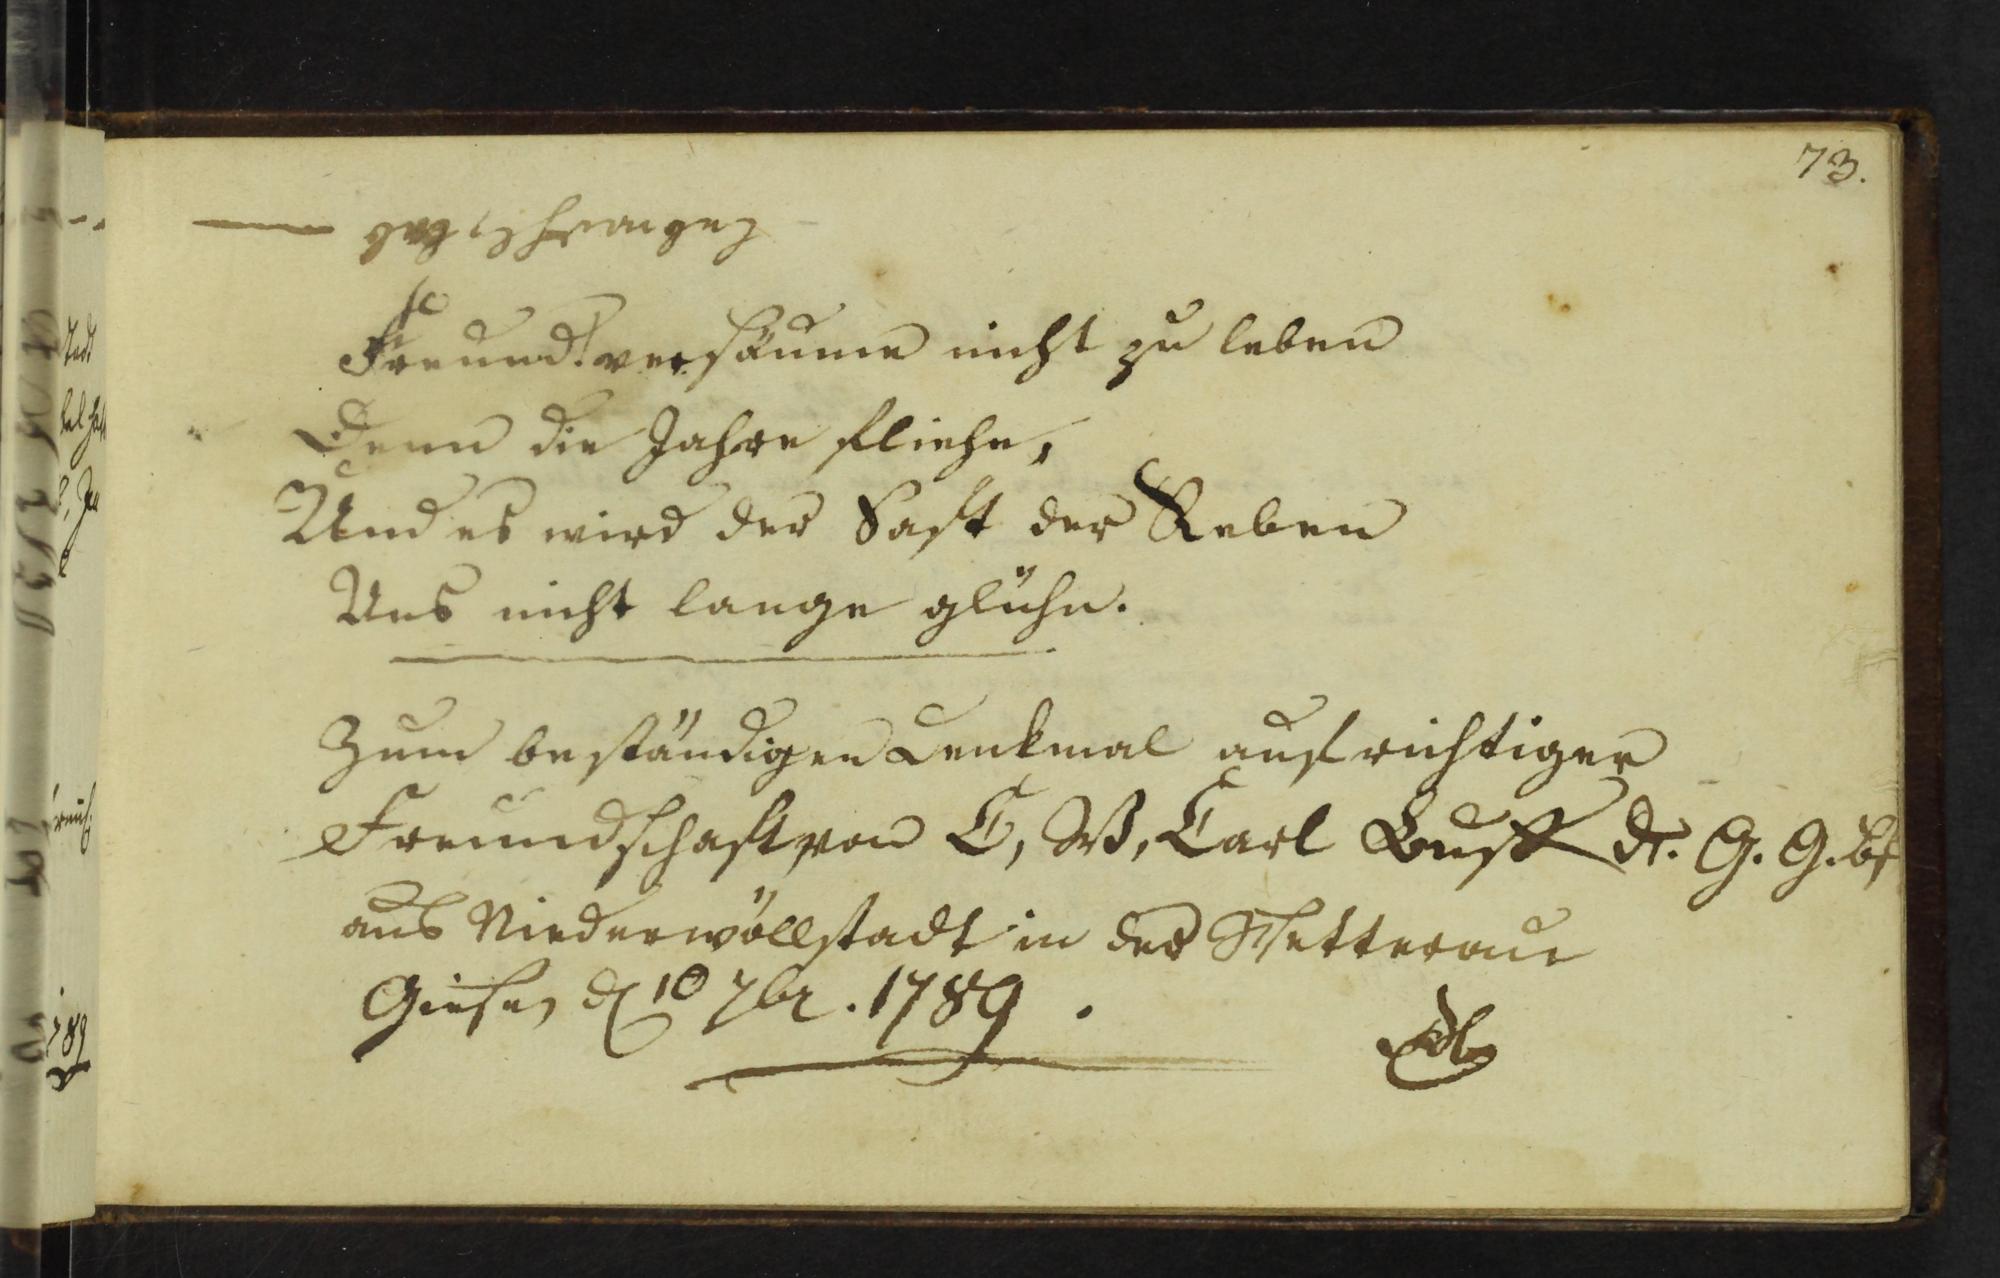 73.
Freund! versäume nicht zu leben
Denn die Jahre fliehn,
Und es wird der Saft der Reben
Uns nicht lange glühn.
Zum beständigen Denkmal aufrichtiger
Freundschaft von C, W, Carl Buff dr. G. G. bfl
aus Niederwöllstadt in der Wetterau
Giesen d 10 7br. 1789.